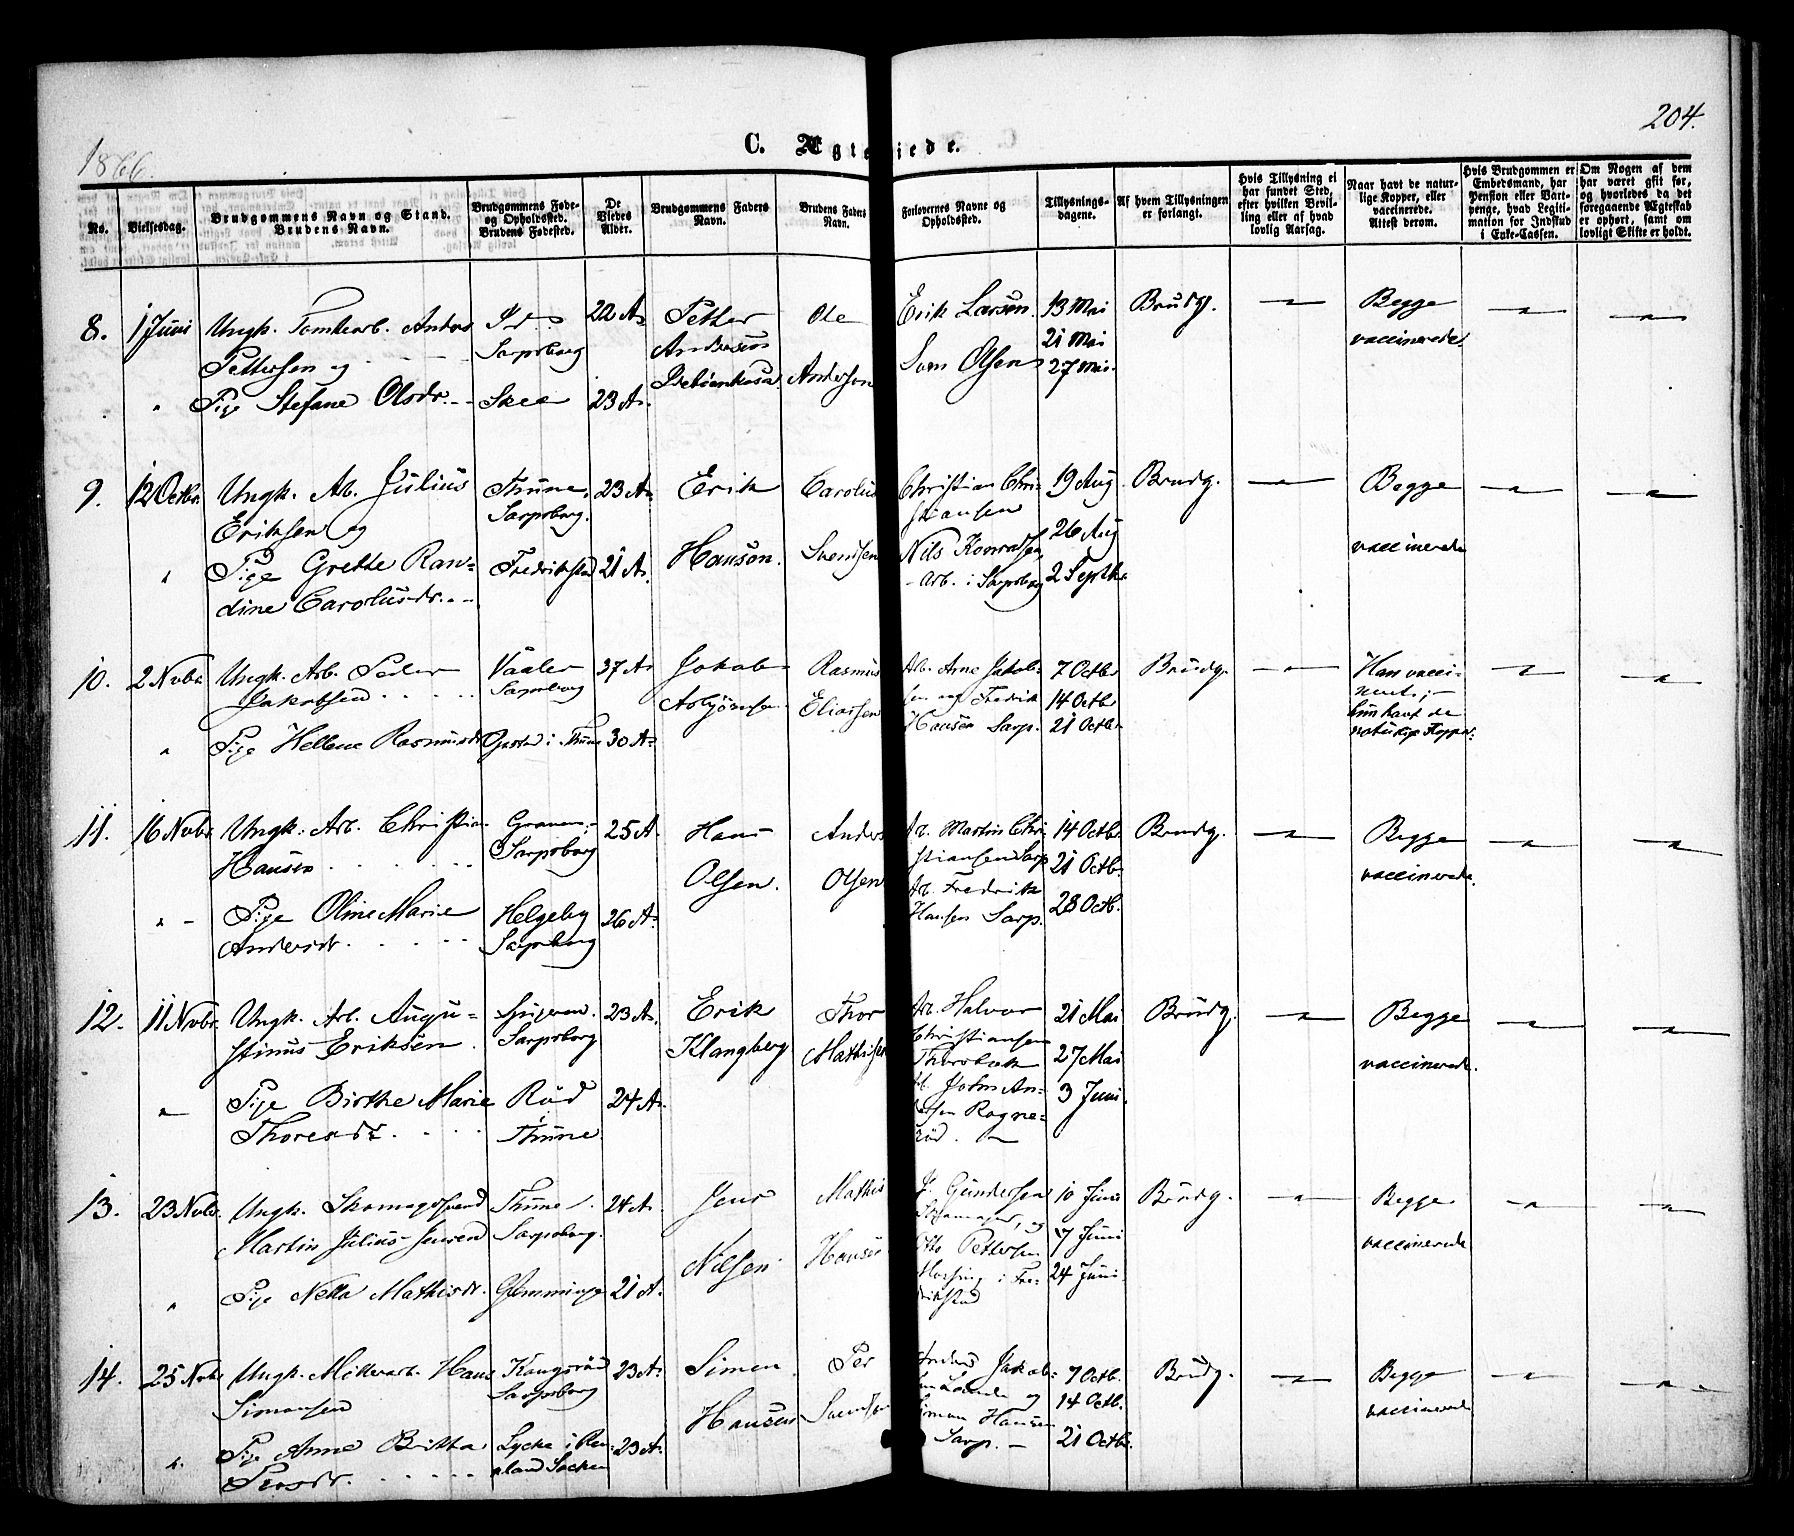 204.
1866.
C. Ægteviede.
No.
Vielsesdag.
Brudgommens Navn og Stand.
Brudens Navn.
Brudgommens Føde-
og Opholdsted.
Brudens Fødested.
De
Viedes
Alder.
Brudgommens Faders
Navn.
Brudens Faders
Navn.
Forlovernes Navne og
Opholdssted.
Tillysnings-
dagene.
Af hvem Tillysningen
er forlangt.
Hvis Tillysning ei
har fundet Sted,
efter hvilken Bevil-
ling eller af hvad
lovlig Aarsag.
Naar havt de natur-
lige Kopper, eller
vaccinerede.
Attest derom.
Hvis Brudgommen er
Embedsmand, har
Pension eller Vart-
penge, hvad Legiti-
mation for Indskud
i Enke-Cassen.
Om Nogen af dem
har været gift før,
og hvorledes da det
foregaaende Ægteskab
er ophørt, samt om
lovligt Skifte er holdt.
8. 1 Juni
Ungk. Tomtearb. Anders
Pettersen og
Pige Stefane Olsdr.
Sarpsborg
Skee
22 A.
23 A.
Petter
Andersen
Ole
Andersen
Erik Larsen.
Sven Olsen
13 Mai
21 Mai
27 Mai.
Brudg.
Begge
vaccinerede.
9. 12 Octbr.
Ungk. Arb. Julius
Eriksen og
Pige Grethe Ran-
dine Carolusdr.
Thune.
Sarpsborg.
Fredrikstad
23 A.
21 A.
Erik
Hansen.
Carolus
Svendsen
Christian Chri-
stiansen
Nils Konradsen
Arb. i Sarpsborg
19 Aug
26 Aug
2 Septbr.
Brudg.
Begge
vaccinerede
10. 2 Novbr
Ungk. Arb. Peder
Jakobsen
Pige Hellene Rasmusdr
Vaaler
Sarpsborg
i Thune
37 A.
30 A.
Jakob
Asbjörnsen
Rasmus
Eliassen
Arb. Arne Jakob-
sen og Fredrik
Hansen Sarp.
7 Octbr
14 Octbr
21 Octbr
Brudg.
Han vacci-
neret;
hun havt de
naturlige Kopper.
11. 16 Novbr.
Ungk. Arb. Christian
Hansen
Pige Oline Marie
Andersdr.
Sarpsborg
Helgeby
Sarpsborg
25 A.
26 A.
Hans
Olsen.
Anders
Olsen
Ar. Martin Chri-
stiansen Sarp
Arb. Fredrik
Hansen Sarp.
14 Octbr
21 Octb.
28 Octb.
Brudg.
Begge
vaccinerede
12. 11 Novbr.
Ungk. Arb. Augu-
stinus Eriksen.
Pige Birthe Marie
Thoresdr.
Sarpsborg
Röd
Thune
23 A.
24 A.
Erik
Klangberg
Thor
Mathisen
Ar. Halvor
Christiansen
John An-
Ragne-
röd.
21 Mai
27 Mai
3 Juni.
Brudg.
Begge
vaccinerede.
13. 23 Novbr.
Ungk. Skomagersvend
Martin Julius Jensen
Pige Netta Mathisdr.
Thune.
Sarpsborg.
Glemminge
24 A.
21 A.
Jens
Nilsen.
Mathis
Hansen
Gundersen
Skomager, og
Otto Pettersen
i Fre-
drikstad
10 Juni
17 Juni
24 Juni.
Brudg.
Begge
vaccinerede
14. 25 Novbr
Ungk. Möllerarb. Hans
Simonsen
Pige Anne Britta
Persdr.
Kangsröd
Sarpsborg
Lycke i
Socken
23 A.
23 A.
Simen
Hansen
Per
Svendsen
Anders Jakob-
og
Simon Hansen
Sarp.
7 Octb.
14 Octb.
21 Octbr.
Brudg.
Begge
vaccinerede